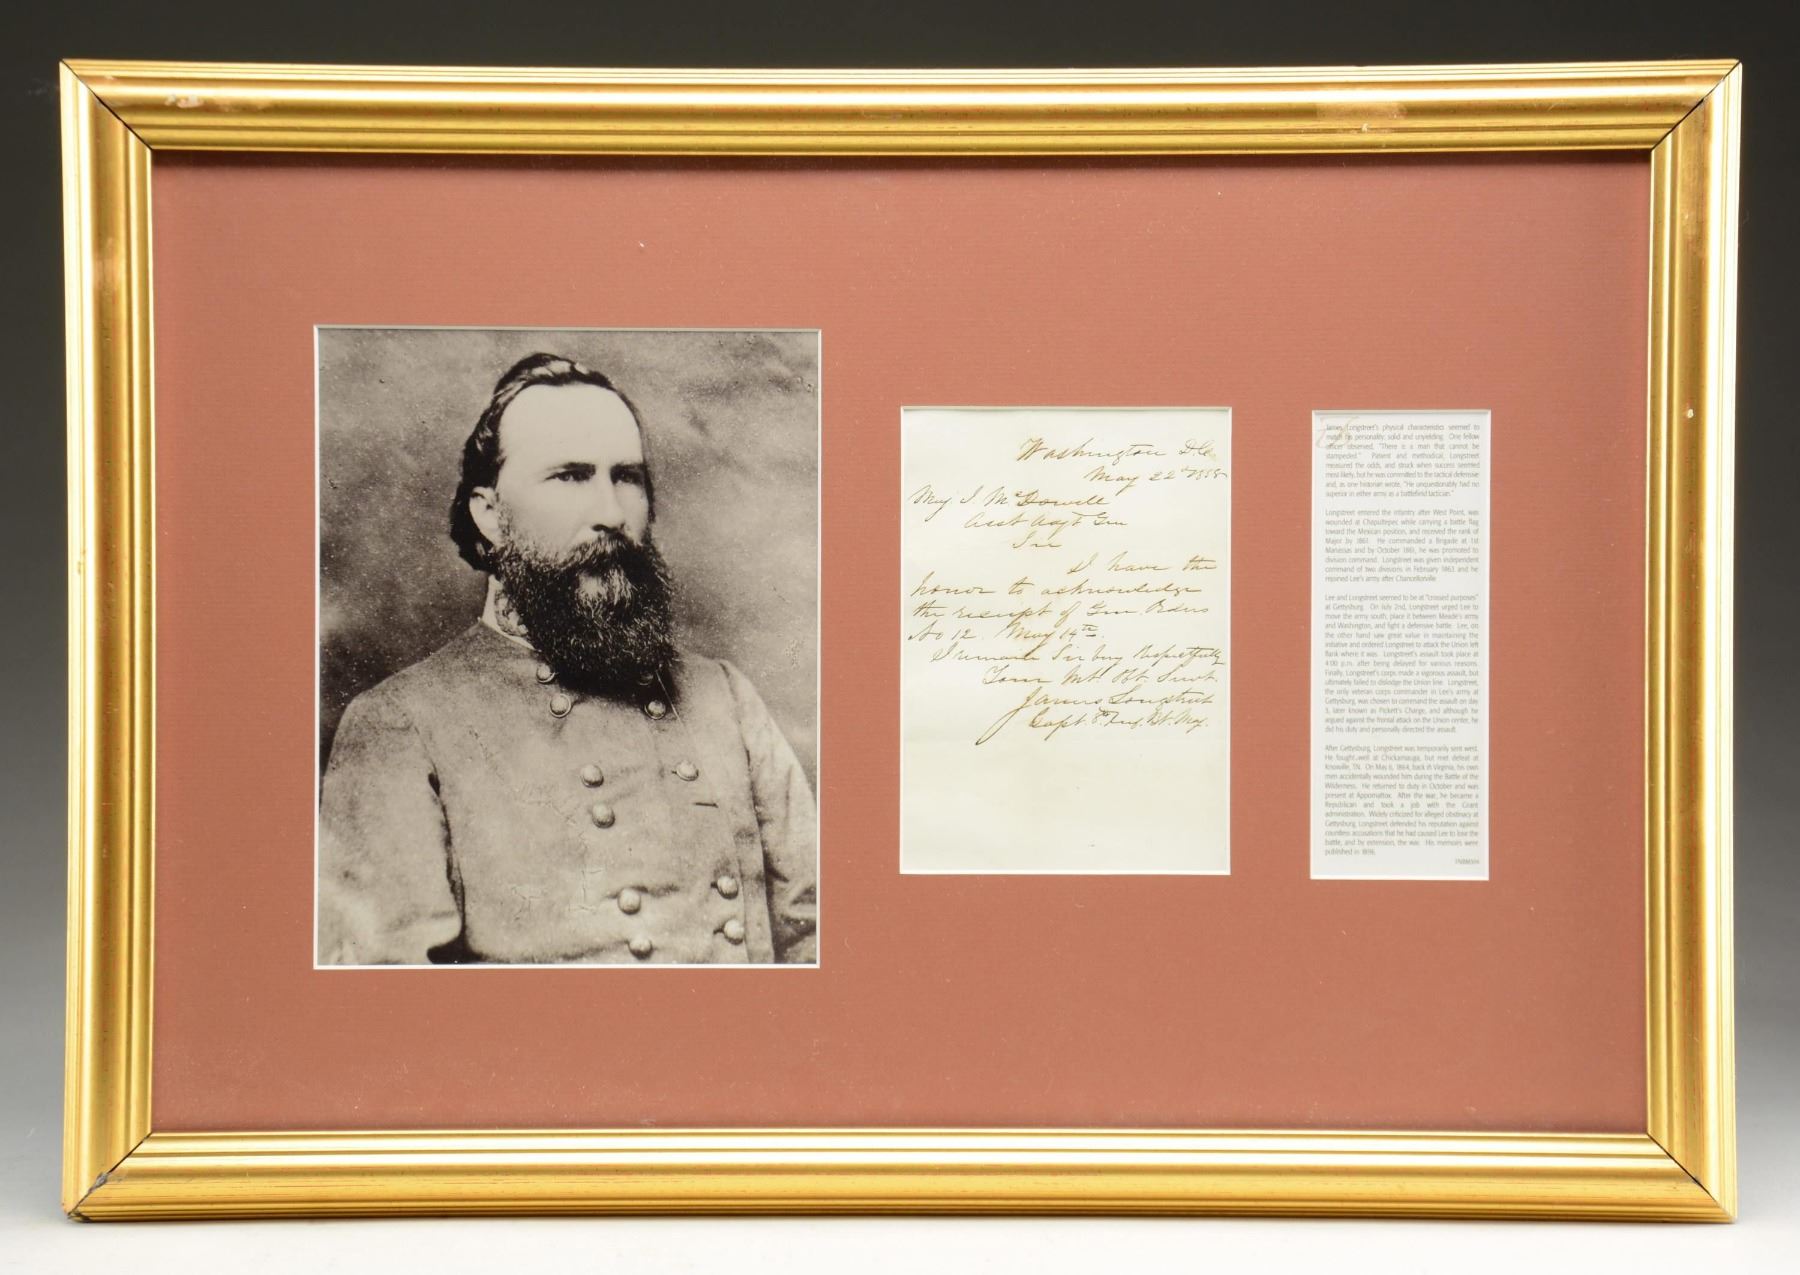 Washington D.C.
May 22d
Maj I. McDowell
Asst Adjt Gen
Sir
I have the
honor to acknowledge
the receipt of Gen. Orders
No 12. May 14th.
I remain Sir Very Respectfully
Your Mt. Obt. Servt.
James Longstreet
Capt. 8th Inf. Bt. Maj.
James Longstreet's physical characteristics seemed to
match his personality: solid and unyielding. One fellow
officer observed, "There is a man that cannot be
stampeded." Patient and methodical, Longstreet
measured the odds, and struck when success seemed
most likely, but he was committed to the tactical defensive
and, as one historian wrote, "He unquestionably had no
superior in either army as a battlefield tactician."
Longstreet entered the infantry after West Point, was
wounded at Chapultepec while carrying a battle flag
toward the Mexican position, and received the rank of
Major by 1861. He commanded a Brigade at 1st
Manassas and by October 1861, he was promoted to
division command. Longstreet was given independent
command of two divisions in February 1863 and he
rejoined Lee's army after Chancellorville
Lee and Longstreet seemed to be at "crossed purposes"
at Gettysburg. On July 2nd, Longstreet urged Lee to
move the army south, place it between Meade's army
and Washington, and fight a defensive battle. Lee, on
the other hand saw great value in maintaining the
initiative and ordered Longstreet to attack the Union left
flank where it was. Longstreet's assault took place at
4:00 p.m. after being delayed for various reasons.
Finally, Longstreet's corps made a vigorous assault, but
ultimately failed to dislodge the Union line. Longstreet,
the only veteran corps commander in Lee's army at
Gettysburg, was chosen to command the assault on day
3, later known as Pickett's Charge, and although he
argued against the frontal attack on the Union center, he
did his duty and personally directed the assault.
After Gettysburg, Longstreet was temporarily sent west.
He fought well at Chickamauga, but met defeat at
Knoxville, TN. On May 6, 1864, back in Virginia, his own
men accidentally wounded him during the Battle of the
Wilderness. He returned to duty in October and was
present at Appomattox. After the war, he became a
Republican and took a job with the Grant
administration. Widely criticized for alleged obstinacy at
Gettysburg, Longstreet defended his reputation against
countless accusations that he had caused Lee to lose the
battle, and by extension, the war. His memoirs were
published in 1896.